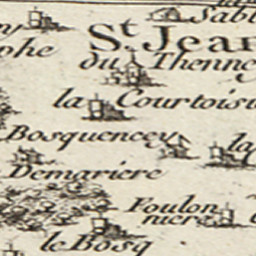 Sabl
St. Jean
phe
du Thenney
la Courtoisi
Bosquencey
la
Demariere
Foulon
niere
le Bosq